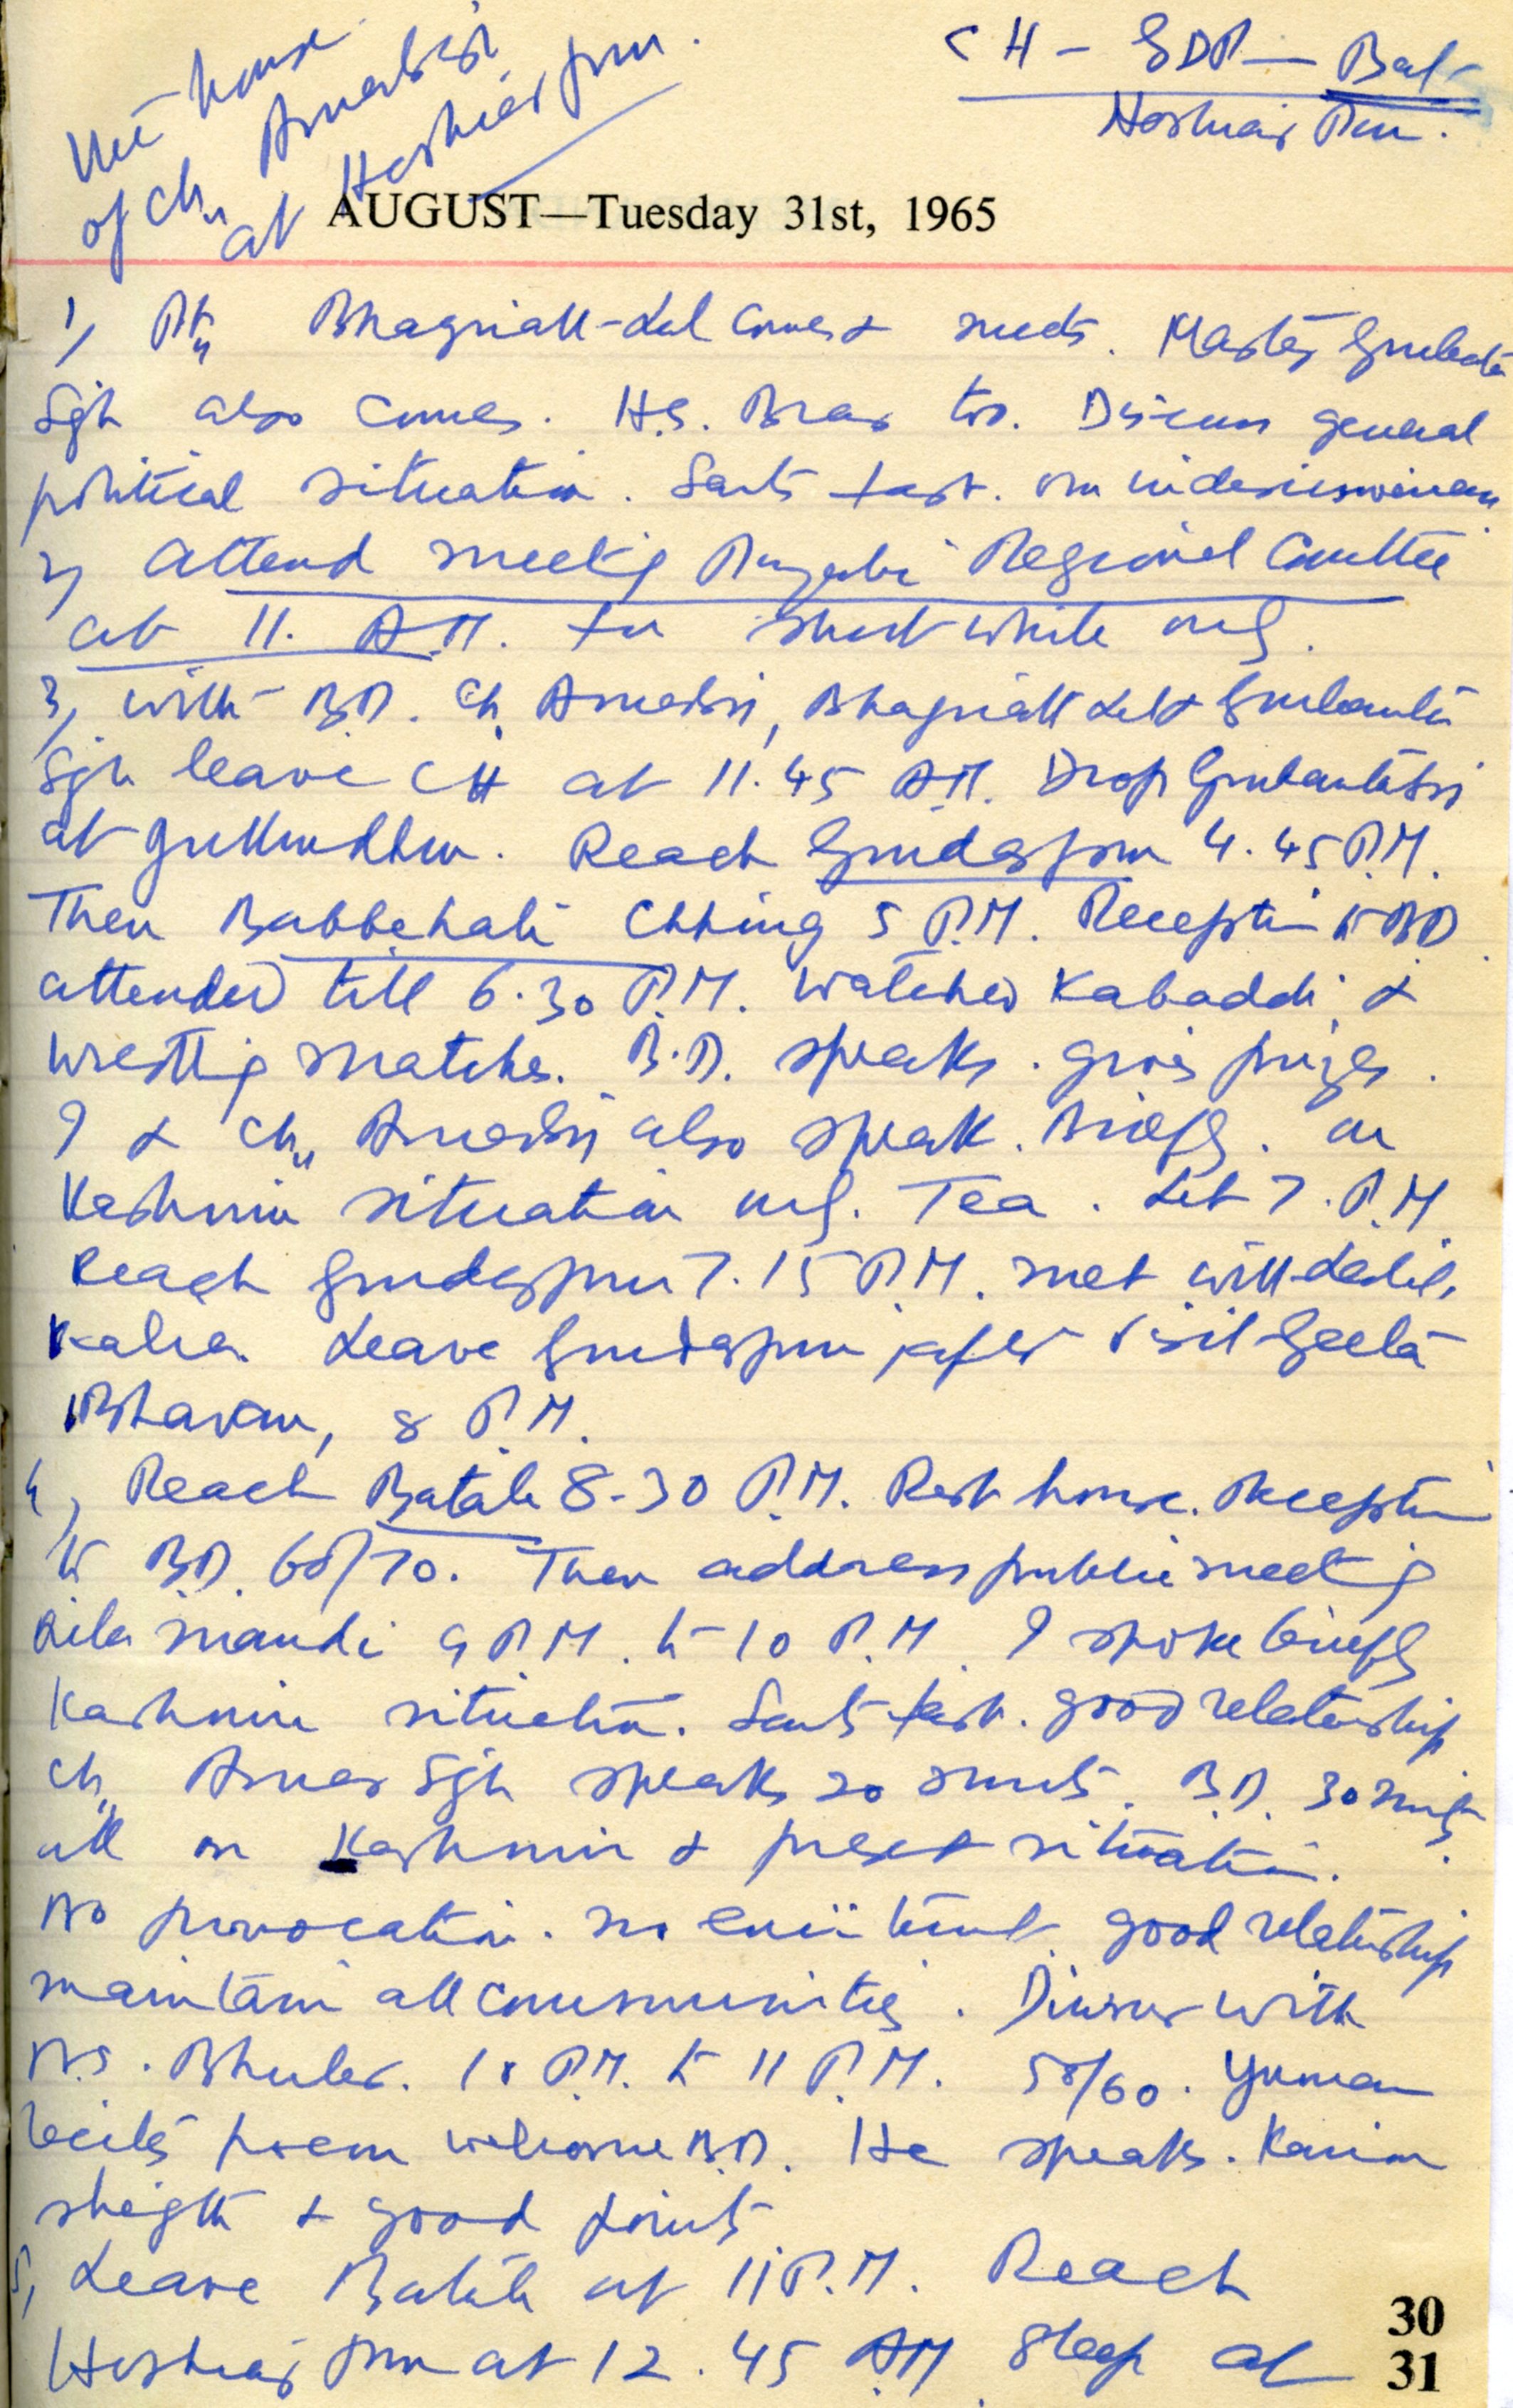 the house
of Ch. Amarsin
at Hoshiarpur.
CH - GDP - Bat
Hoshiarpur.
AUGUST—Tuesday 31st, 1965
1) Pt. Bhagriath Lal comes & meets. Master Gurbanta
Sgh also comes. H.S. Brar too. Discuss general
political situation. Sants fast. our
2) Attend meeting Punjabi Regional Cmttee
at 11. A.M. for short while only.
3) with B.D. Ch. Amarsin, Bhagriath Lal & Gurbanta
Sgh leave CH at 11.45 A.M. Drop Gurbantasin
at Jullundhur. Reach Gurdaspur 4.45 P.M.
Then Babbehali Chhing 5 P.M. Reception to BD
attended till 6.30 P.M. Watched Kabaddi &
wrestling matches. B.D. speaks. gives prizes.
I & Ch. Amarsin also speak. briefly. on
Kashmir situation only. Tea. Left 7. P.M
Reach Gurdaspur 7.15 P.M. met with
Kalra. Leave Gurdaspur after visit Geeta
Bhavan, 8 P.M.
4) Reach Batala 8-30 P.M. Rest house. Reception
to B.D. 60/70. Then address public meeting
Qila mandi 9 P.M. to 10 P.M. I spoke briefly
Kashmir situation. Sants fast. good relationship
Ch. Amar Sgh speaks 20 mnts. B.D. 30 mnts
all on Kashmir & present situation.
No provocation. no good relationship
maintain all communities. Dinner with
Bhuler. 10 P.M. to 11 P.M. 50/60.
recites poem welcome B.D. He speaks.
& good points
5) Leave Batala at 11 P.M. Reach
Hoshiarpur at 12.45 AM. Sleep at
30
31